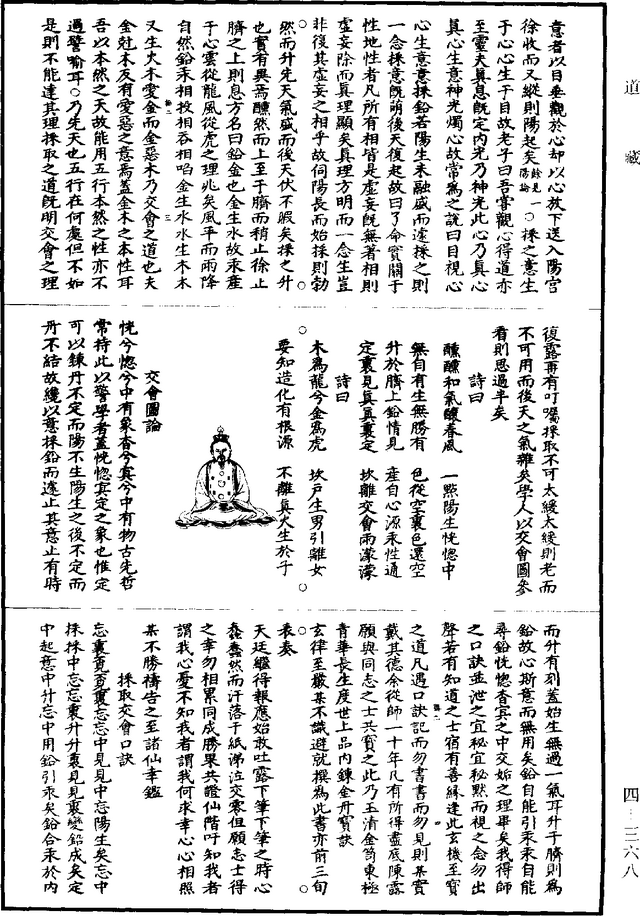 意者以目垂觀於心却以心放下送入陽宮
徐收而又縱則陽起矣餘見陽論一○採之意生
于心心生于目故老子曰吾嘗觀心得道亦
至靈夫真息既定內光乃神光此心乃真心
真心生意神光燭心故常為之說曰目視心
心生意意採鉛若陽生未融盛而遽採之則
一念採意既萌後天復起故曰了命實關于
性地性者凡所有相皆是虛妄既無著相則
虛妄除而真理顯矣真理方明而一念生豈
非復其虛妄之相乎故伺陽長而始採則勃
然而升先天氣盛而後天伏不暇矣採之升
也實有異焉醺然而上至于臍而稍止徐止
臍之上則息方名曰鉛金也金生水故汞產
于心雲從龍風從虎之理兆矣風平而雨降
自然鉛汞相投相吞相啗金生水水生木木
又生火木愛金而金惡木乃交會之道也夫
金尅木反有愛惡之意焉蓋金木之本性耳
吾以本然之天故能用五行本然之性亦不
過譬喻耳○乃先天也五行在何處但不如
是則不能達其理採取之道既明交會之理
復露再有叮囑採取不可太緩太緩則老而
不可用而後天之氣雜矣學人以交會圖參
看則思過半矣
詩曰
醺醺和氣釀春風　一點陽生恍惚中
無自有生無勝有　色從空裏色還空
升於臍上鉛情見　產自心源汞性通
定裏見真真裏定　坎離交會雨濛濛
詩曰
木為龍兮金為虎　坎戶生男引離女
要知造化有根源　不離真火生於子
交會圖論
恍兮惚兮中有象杳兮冥兮中有物古先哲
常持此以警學者蓋恍惚真定之象也惟定
可以鍊丹不定而陽不生陽生之後不定而
丹不結故纔以意採鉛而遽止其意止有時
而升有刻蓋始生無過一氣耳升于臍則為
鉛故心斯意而無用矣鉛自能引汞汞自能
尋鉛恍惚杳冥之中交姤之理畢矣我得師
之口訣並泄之宜秘宜秘黙而視之念勿出
聲若有知道之士宿有善緣逢此玄機至寶
之道凡遇口訣記而勿書書而勿見則某實
戴其德余從師一十年凡有所得盡底陳露
願與同志之士共寶之此乃玉清金笥東極
青華長生度世上品內鍊金丹寶訣
玄律至嚴某不識避就撰為此書亦前三旬
表奏
天廷繼得報應始敢吐露下筆下筆之時心
蠢蠢然而汗落于紙涕泣交零但願志士得
之幸勿相累同成勝果共證仙階吁知我者
謂我心憂不知我者謂我何求幸心心相照
某不勝禱告之至諸仙幸鑑
採取交會口訣
忘裏覓覓裏忘忘中見見中忘陽生矣忘中
採採中忘忘裏升升裏見見裏變鉛成矣定
中起意中升忘中用鉛引汞矣鉛合汞於內
道藏
四—三六八